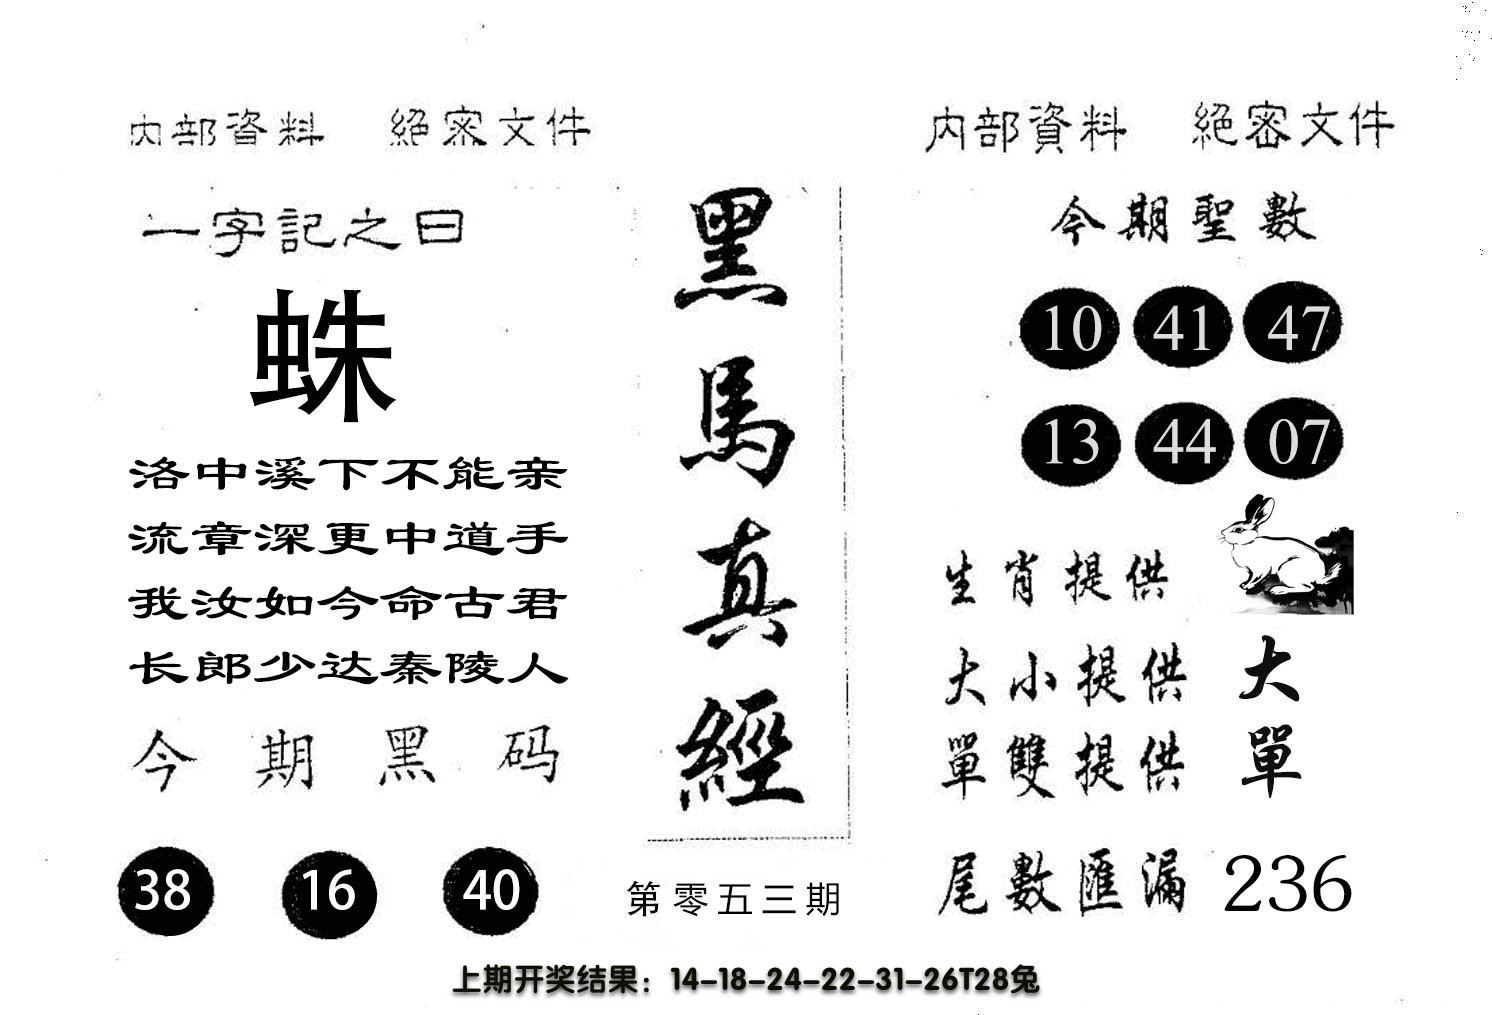 内部資料 絕密文件
一字記之曰
蛛
洛中溪下不能亲
流章深更中道手
我汝如今命古君
长郎少达秦陵人
今期黑码
38 16 40
黑馬真經
第零五三期
内部資料 絕密文件
今期聖數
10 41 47
13 44 07
生肖提供
大小提供 大
單雙提供 單
尾數匯漏 236
上期开奖结果：14-18-24-22-31-26T28兔